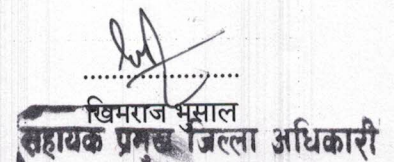 खिमराज भुसाल
सहायक प्रमुख जिल्ला अधिकारी